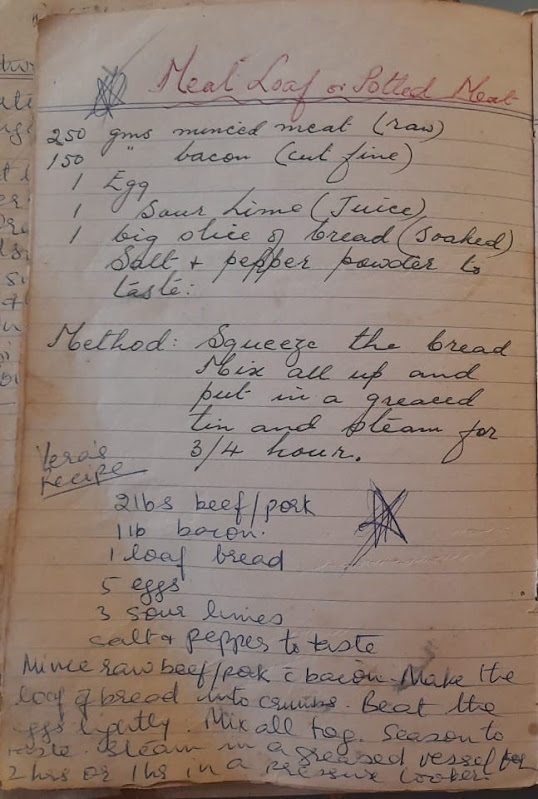 Meat Loaf or Potted Meat
250 gms minced meat (raw)
150 " bacon (cut fine)
1 Egg
1 Sour Lime (Juice)
1 big slice of bread (soaked)
Salt + pepper powder to
taste:
Method: Squeeze the bread
Mix all up and
put in a greased
tin and steam for
3/4 hour.
Vera's
Recipe
2lbs beef/pork
1lb bacon.
1 loaf bread
5 eggs
3 sour limes
salt + pepper to taste
Mince raw beef/pork c̄ bacon. Make the
loaf of bread into crumbs. Beat the
eggs lightly. Mix all tog. Season to
taste. Steam in a greased vessel for
2 hrs or 1 hs in a pressure cooker.